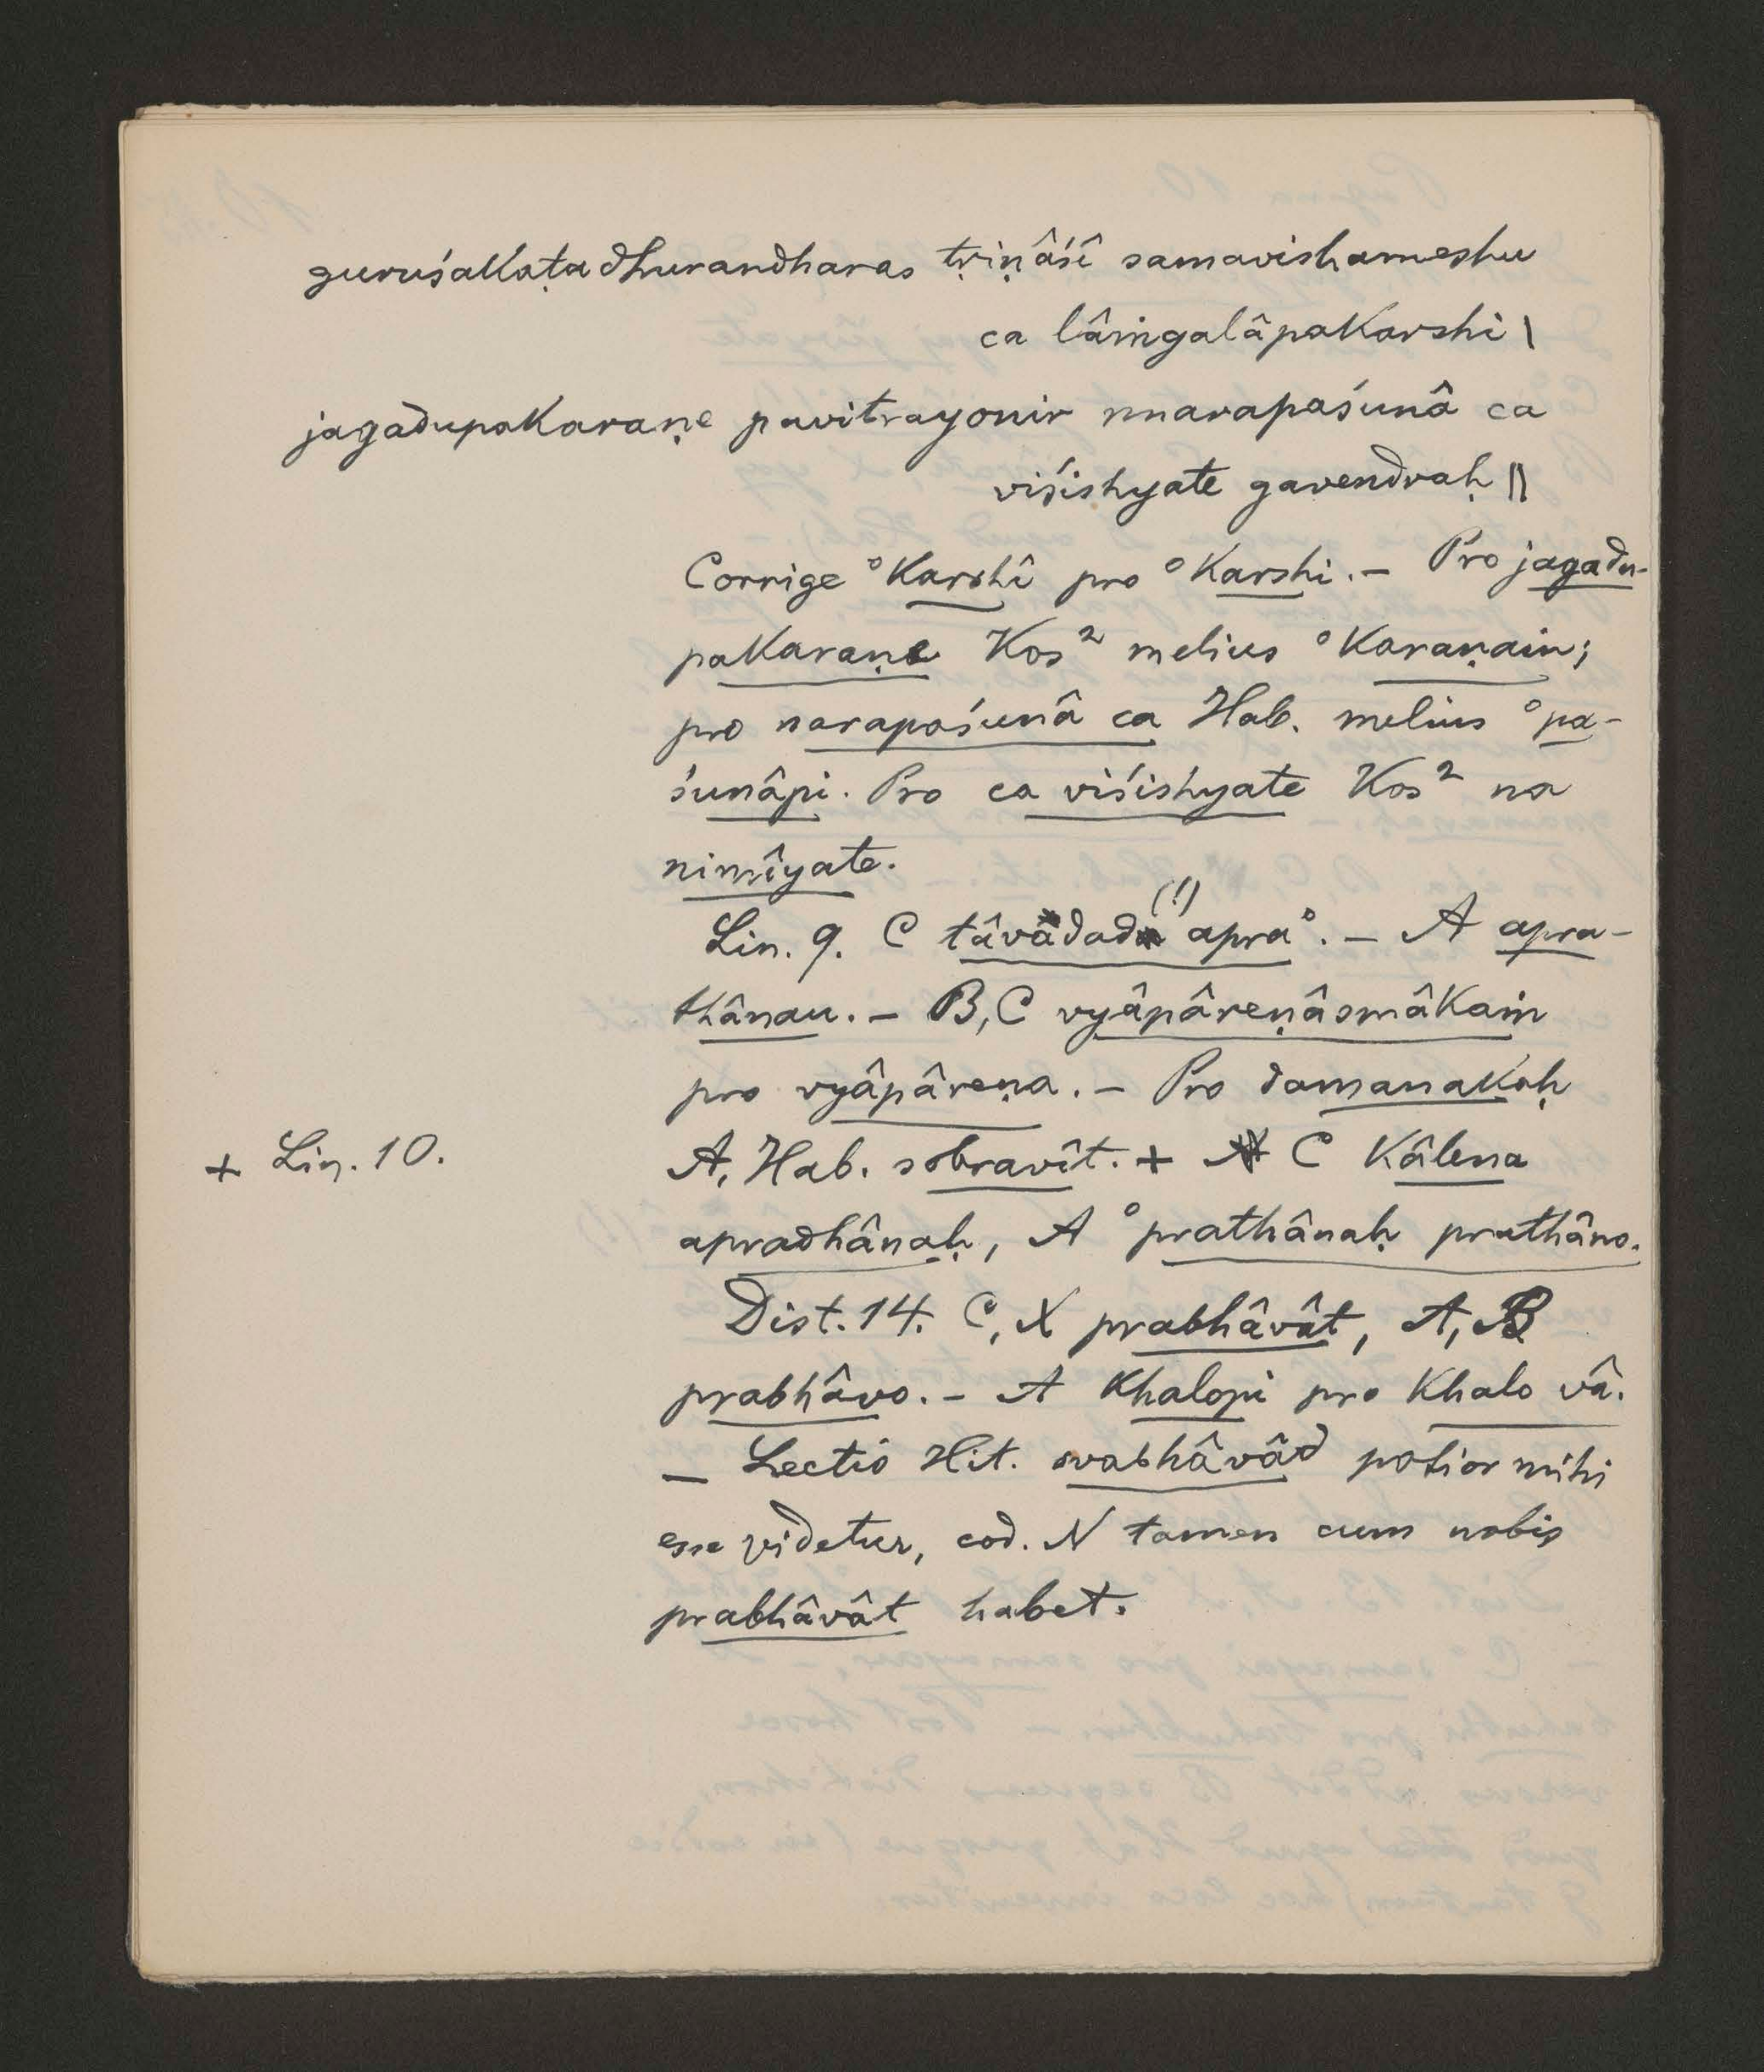 guruśakaṭadhurandharas tṛiṇâśî samavishameshu
ca lâṁgalâpakarshi |
jagadupakaraṇe pavitrayonir nnarapaśunâ ca
viśishyate gavendraḥ ||
Corrige °karshî pro °karshi. – Pro jagadu-
pakaraṇe Kos² melius °karaṇaiṁ;
pro narapaśunâ ca Hab. melius °pa-
śunâpi. Pro ca viśishyate Kos² na
nimîyate.
Lin. 9. C tâvadada (!) apra°. – A apra-
thânau. – B, C vyâpâreṇâsmâkaṁ
pro vyâpâreṇa. – Pro damanakaḥ
+ Lin. 10.
A, Hab. sobravît. + C kâlena
apradhânaḥ, A °prathânaḥ prathâno.
Dist. 14. C, X prabhâvât, A, B
prabhâvo. – A khalopi pro khalo vâ.
– Lectio Hit. svabhâvâd potior mihi
esse videtur, cod. N tamen cum nobis
prabhâvât habet.